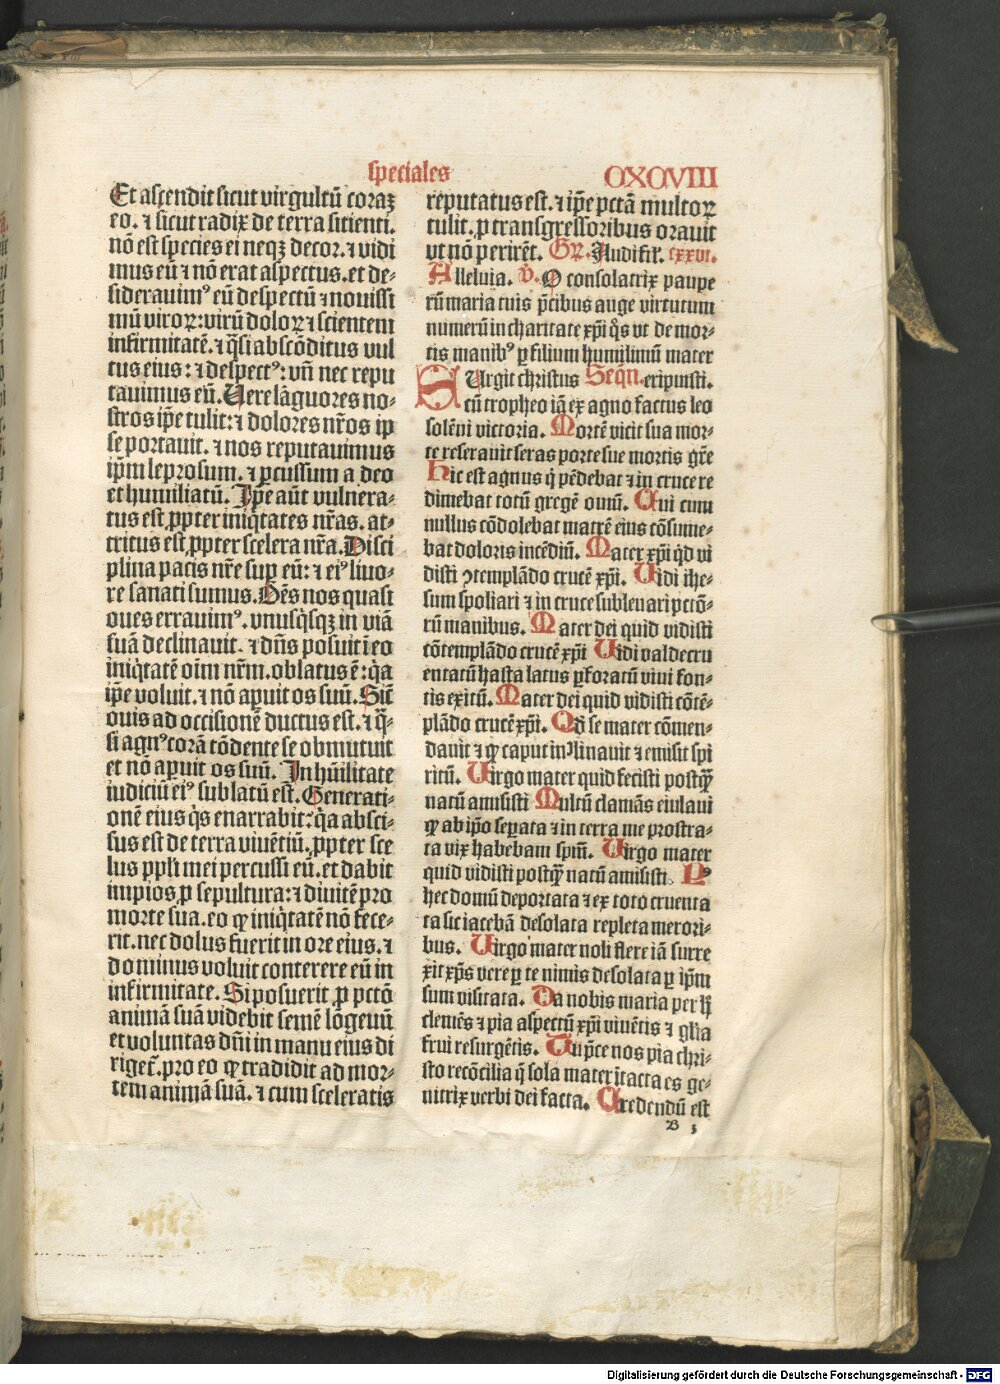 speciales
CXCVIII
Et ascendit sicut virgultū coraꝫ
eo. ⁊ sicut radix de terra sitienti.
nō est species ei neqꝫ decor. ⁊ vidi
mus eū ⁊ nō erat aspectus. et de⸗
siderauim⁹ eū despectū ⁊ nouissi
mū viroꝝ: virū doloꝝ ⁊ scientem
infirmitatē. ⁊ q̄si abscōditus vul
tus eius: ⁊ despect⁹: vn̄ nec repu
tauimus eū. Vere lāguores no⸗
stros ip̄e tulit: ⁊ dolores nr̄os ip
se portauit. ⁊ nos reputauimus
ip̄m leprosum. ⁊ ꝑcussum a deo
et humiliatū. Ip̄e aūt vulnera⸗
tus est ꝓpter iniq̇tates nr̄as. at⸗
tritus est ꝓpter scelera nr̄a. Disci
plina pacis nr̄e suꝑ eū: ⁊ ei⁹ liuo⸗
re sanati sumus. Oēs nos quasi
oues errauim⁹. vnusq̇sqꝫ in viā
suā declinauit. ⁊ dn̄s posuit ī eo
iniq̇tatē oīm nr̄m. oblatus ē: q̇a
ip̄e voluit. ⁊ nō aꝑuit os suū. Sic̄
ouis ad occisionē ductus est. ⁊ q̄⸗
si agn⁹ corā tōdente se obmutuit
et nō aꝑuit os suū. In hūilitate
iudiciū ei⁹ sublatū est. Generati⸗
onē eius q̇s enarrabit: q̇a absci⸗
sus est de terra viuētiū. ꝓpter sce
lus pp̄li mei percussi eū. et dabit
impios ꝓ sepultura: ⁊ diuitē pro
morte sua. eo ꝙ iniq̇tatē nō fece⸗
rit. nec dolus fuerit in ore eius. ⁊
dominus voluit conterere eū in
infirmitate. Si posuerit ꝓ pctō
animā suā videbit semē lōgeuū
et voluntas dn̄i in manu eius di
riget̄. pro eo ꝙ tradidit ad mor⸗
tem animā suā. ⁊ cum sceleratis
reputatus est. ⁊ ip̄e pctā multoꝝ
tulit. ꝓ transgressoribus orauit
vt nō perirēt. Gꝝ. Audifil̄. cxxvi.
Alleluia. v̄. O consolatrix paupe
rū maria tuis p̄cibus auge virtutum
numerū in charitate xp̄i q̄s vt de mor⸗
tis manib⁹ ꝑ filium humilimū mater
Surgit christus Seqn̄. eripuisti.
cū tropheo iā ex agno factus leo
solēni victoria. Mortē vicit sua mor⸗
te reserauit seras porte sue mortis gr̄e
Hic est agnus q̇ pēdebat ⁊ in cruce re
dimebat totū gregē ouiū. Cui cum
nullus cōdolebat matrē eius cōsume⸗
bat doloris incēdiū. Mater xp̄i qd̄ vi
disti ꝯtemplādo crucē xp̄i. Vidi ihe⸗
sum spoliari ⁊ in cruce subleuari pctō⸗
rū manibus. Mater dei quid vidisti
cōtemplādo crucē xp̄i Vidi valde cru
entatū hasta latus ꝑforatū viui fon⸗
tis exitū. Mater dei quid vidisti cōtē⸗
plādo crucē xp̄i. Qd̄ se mater cōmen⸗
dauit ⁊ ꝙ caput inꝯlinauit ⁊ emisit spi
ritū. Virgo mater quid fecisti postq̄ꝫ
natū amisisti Multū clamās eiulaui
ꝙ ab ip̄o seꝑata ⁊ in terra me prostra⸗
ta vix habebam spm̄. Virgo mater
quid vidisti postq̄ꝫ natū amisisti. P⁹
hec domū deportata ⁊ ex toto cruenta
ta sic iacebā desolata repleta merori⸗
bus. Virgo mater noli flere iā surre
xit xp̄s vere ꝑ te nimis desolata ꝑ ip̄m
sum visitata. Da nobis maria per
clemēs ⁊ pia aspectū xp̄i viuētis ⁊ gl̄ia
frui resurgētis. Tu p̄ce nos pia chri⸗
sto recōcilia q̄ sola mater ītacta es ge⸗
nitrix verbi dei facta. Credendū est
B 3
Digitalisierung gefördert durch die Deutsche Forschungsgemeinschaft - DFG